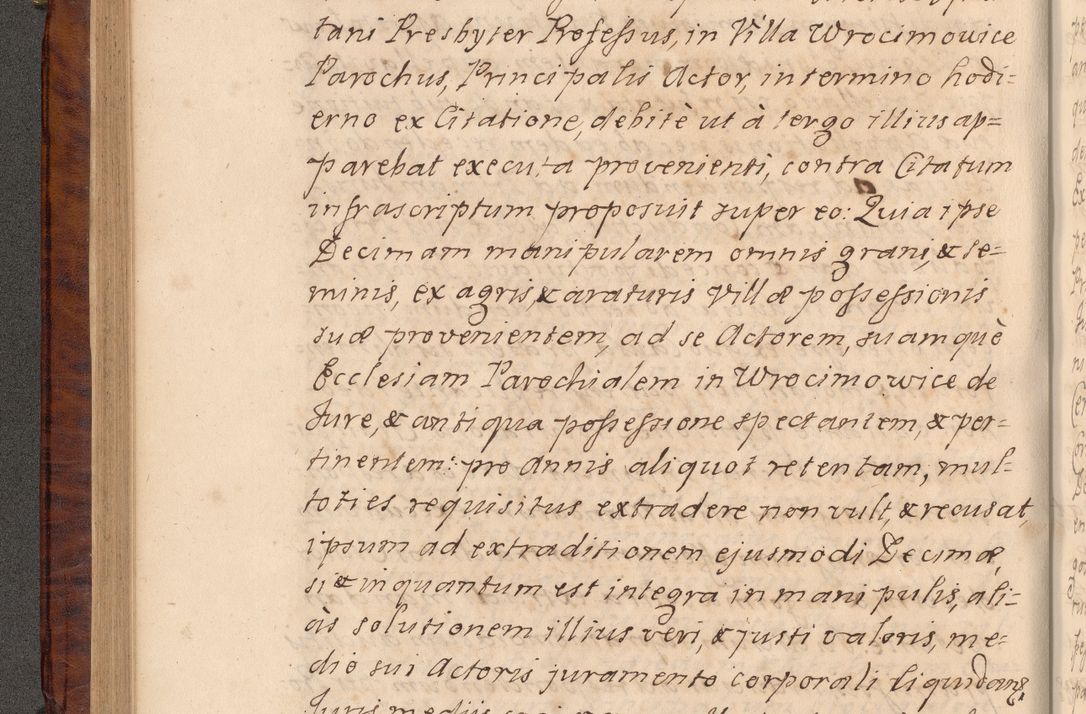 tani Presbyter Professus, in Villa Wrocimowice
Parochus, Principalis Actor, in termino hodi=
erno ex Citatione, debitè ut à tergo illius ap=
parebat executa provenienti, contra Citatum
infrascriptum proposuit super eo: Quia ipse
Decimam manipularem omnis grani, & se=
minis, ex agris, & araturis Villæ possessionis
suæ provenientem, ad se Actorem, suamquè
Ecclesiam Parochialem in Wrocimowice de
Jure, & antiqua possessione spectantem, & per=
tinentem: pro Annis aliquot retentam, mul=
toties requisitus extradere non vult, & recusat,
ipsum ad extraditionem ejusmodi Decimæ,
si & inquantum est integra in manipulis, ali=
às solutionem illius veri, & justi valoris, me=
dio sui Actoris juramento corporali liquidan
Juris mediis